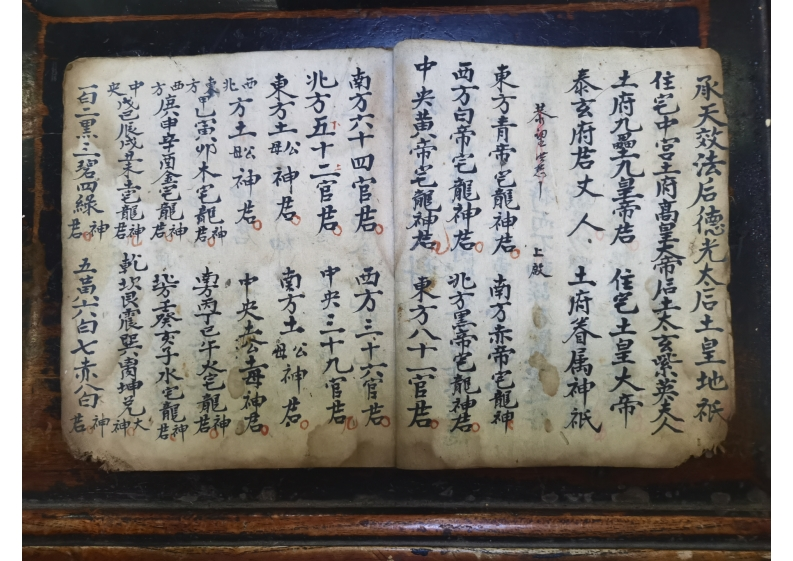 承天效法后德光太后土皇地祇
住宅中宮土府高皇帝后土太玄紫英夫人
土府九壘九皇帝君 住宅土皇大帝
泰玄府君丈人 土府眷属神祇
上啟
東方青帝宅龍神君 南方赤帝宅龍神
西方白帝宅龍神君 北方黑帝宅龍神君
中央黄帝宅龍神君 東方八十一官君
南方六十四官君 西方三十六官君
北方五十二官君 中央三十九官君
東方土公土母神君 南方土公土母神君
西北方土公土母神君 中央土公土母神君
東方甲寅卯木宅龍神君 南丙丁巳午火宅龍神君
西方庚申辛酉金宅龍神君 壬癸亥子水宅龍神君
中央戊己辰戌丑未土宅龍神君 乾坎艮震巽离坤兑大神
一白二黒三碧四綠神君 五黄六白七赤八白神君